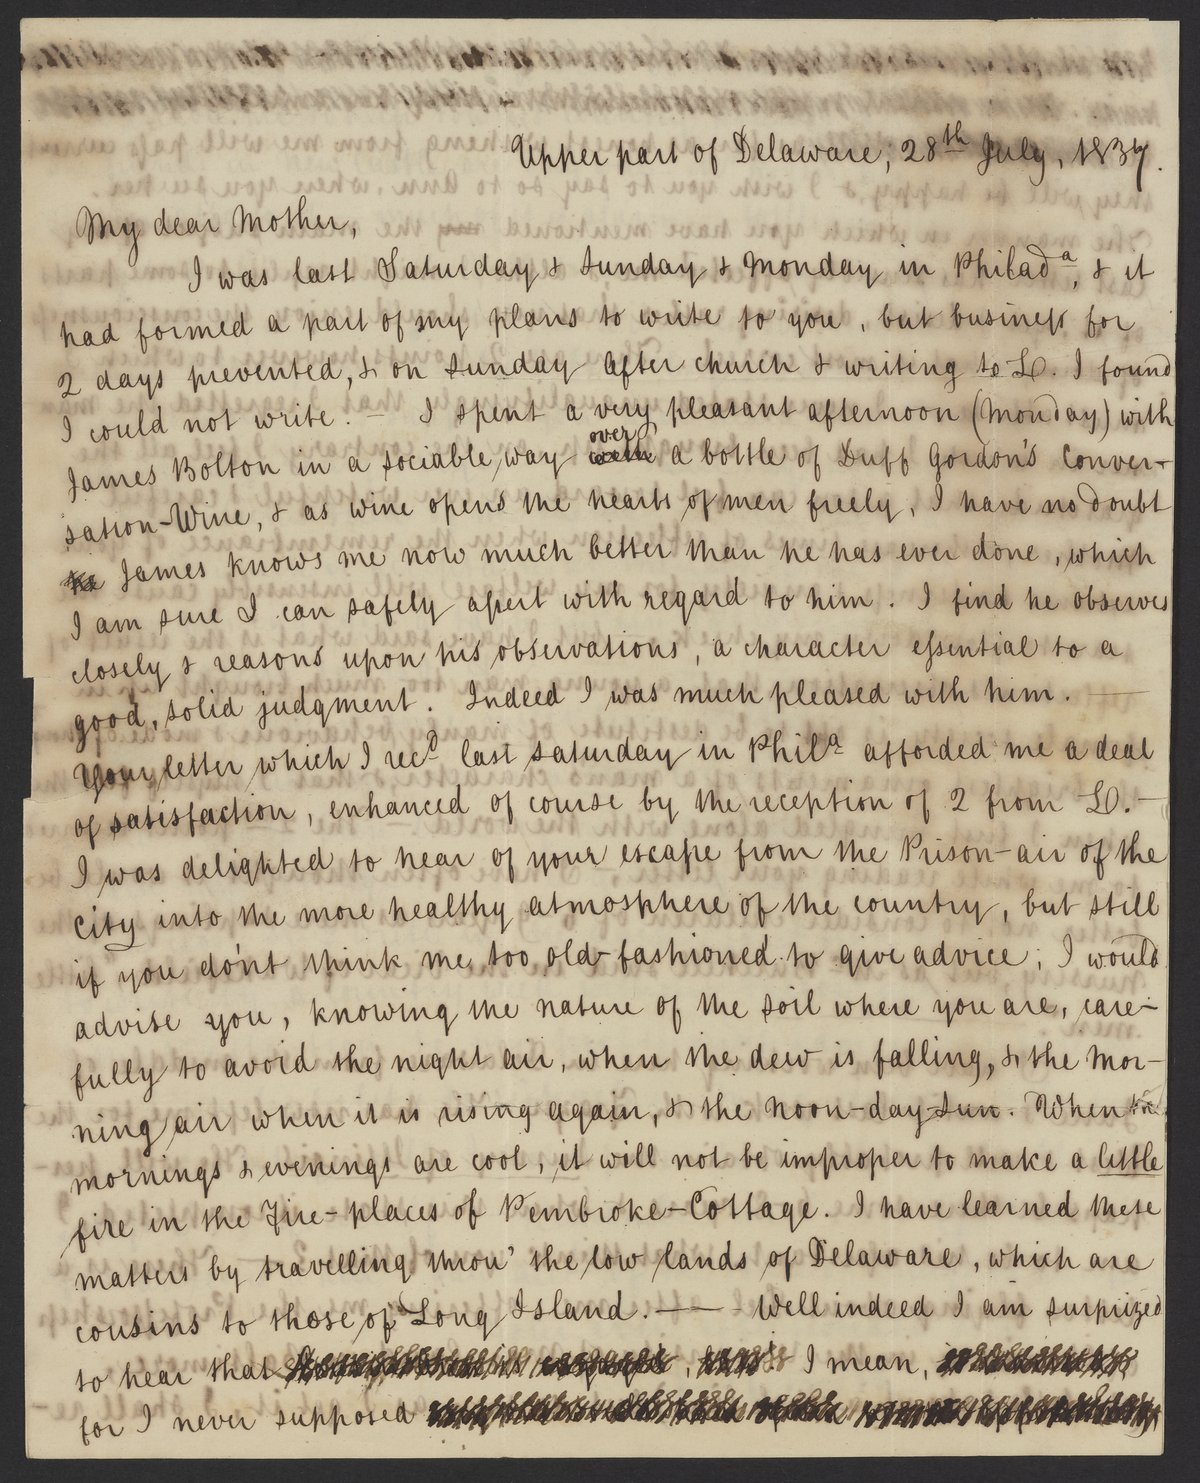 Upper part of Delaware, 28th July, 1837.
My dear Mother,
I was last Saturday & Sunday & Monday in Philada, & it
had formed a part of my plans to write to you, but business for
2 days prevented, & on Sunday after church & writing to LD. I found
I could not write. — I spent a very pleasant afternoon (Monday) with
James Bolton in a sociable way over with a bottle of Duff Gordon's Conver-
sation-Wine, & as wine opens the hearts of men freely, I have no doubt
he James knows me now much better than he has ever done, which
I am sure I can safely assert with regard to him. I find he observes
closely & reasons upon his observations, a character essential to a
good, solid judgment. Indeed I was much pleased with him. —
Your letter which I recd last Saturday in Phila afforded me a deal
of satisfaction, enhanced of course by the reception of 2 from LD. —
I was delighted to hear of your escape from the Prison-air of the
City into the more healthy atmosphere of the country, but still
if you do'nt think me too old-fashioned to give advice, I would
advise you, knowing the nature of the soil where you are, care-
fully to avoid the night air, when the dew is falling, & the mor-
ning air when it is rising again, & the noon-day-sun. When the
mornings & evenings are cool, it will not be improper to make a little
fire in the Fire-places of Pembroke-Cottage. I have learned these
matters by travelling throu' the low lands of Delaware, which are
cousins to those of Long Island. — Well indeed I am surprized
to hear that I mean,
for I never supposed